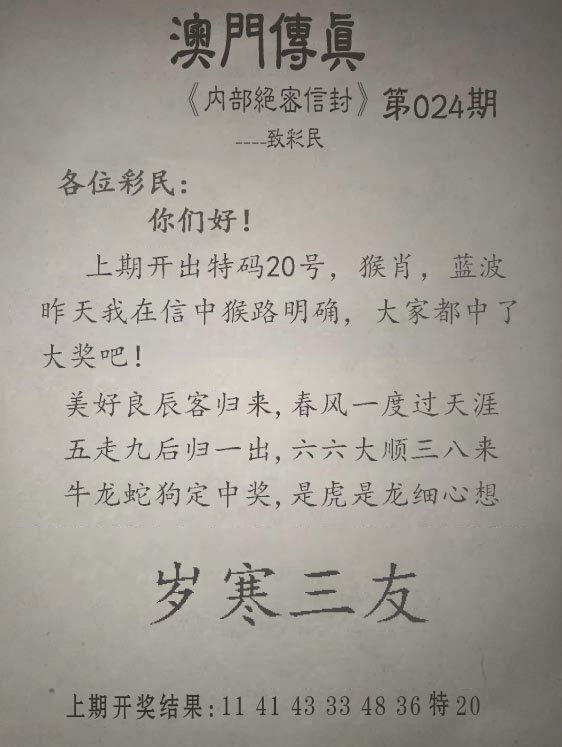 澳門傳眞
《内部絕密信封》第024期
----致彩民
各位彩民：
你们好！
上期开出特码20号，猴肖，蓝波
昨天我在信中猴路明确，大家都中了
大奖吧！
美好良辰客归来,春风一度过天涯
五走九后归一出,六六大顺三八来
牛龙蛇狗定中奖,是虎是龙细心想
岁寒三友
上期开奖结果:11 41 43 33 48 36 特 20